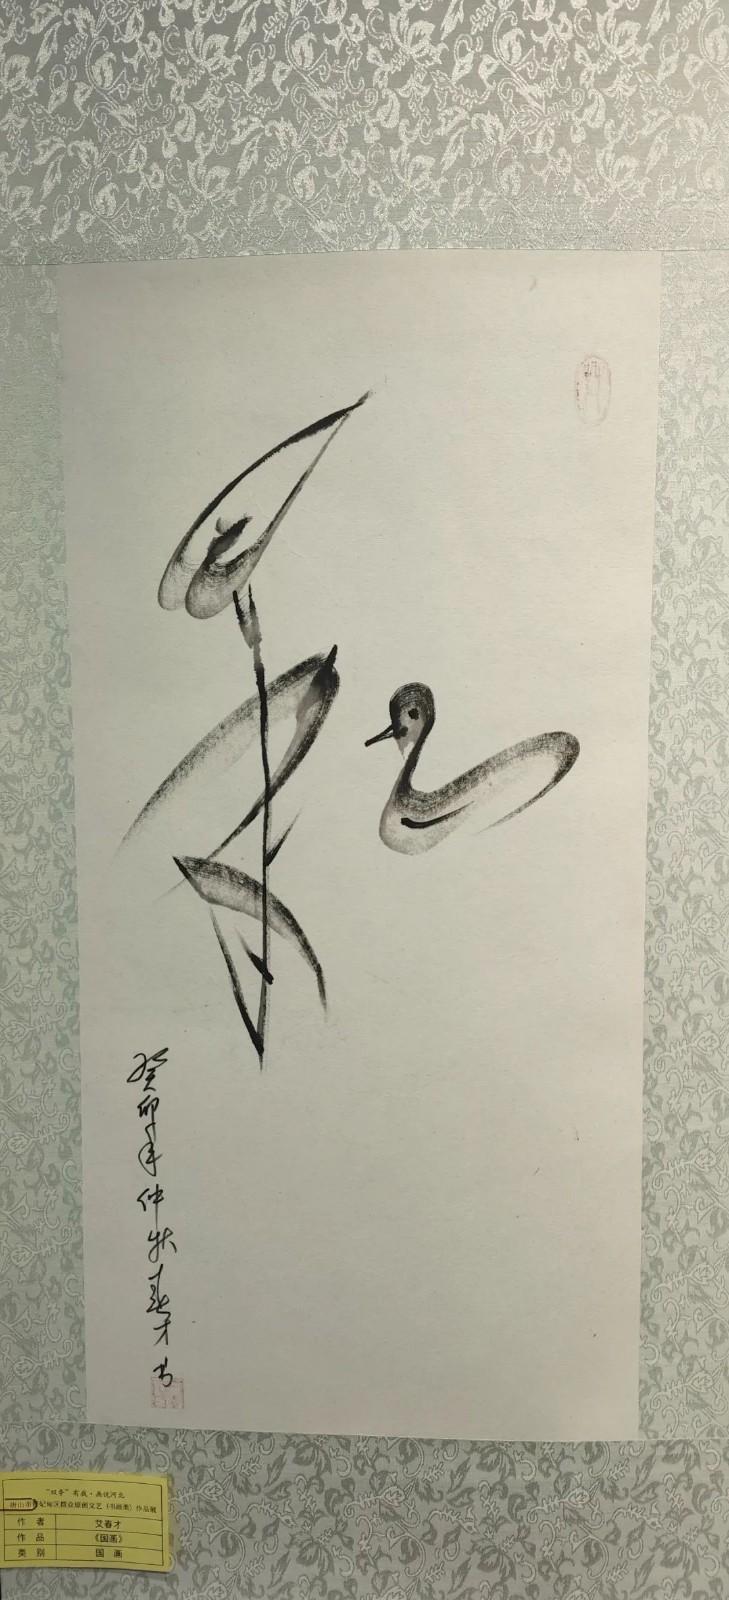 癸卯年仲秋春才书
"双争"有我·画说河北
唐山市曹妃甸区群众原创文艺（书画类）作品展
作 者 艾春才
作 品 《国画》
类 别 国 画